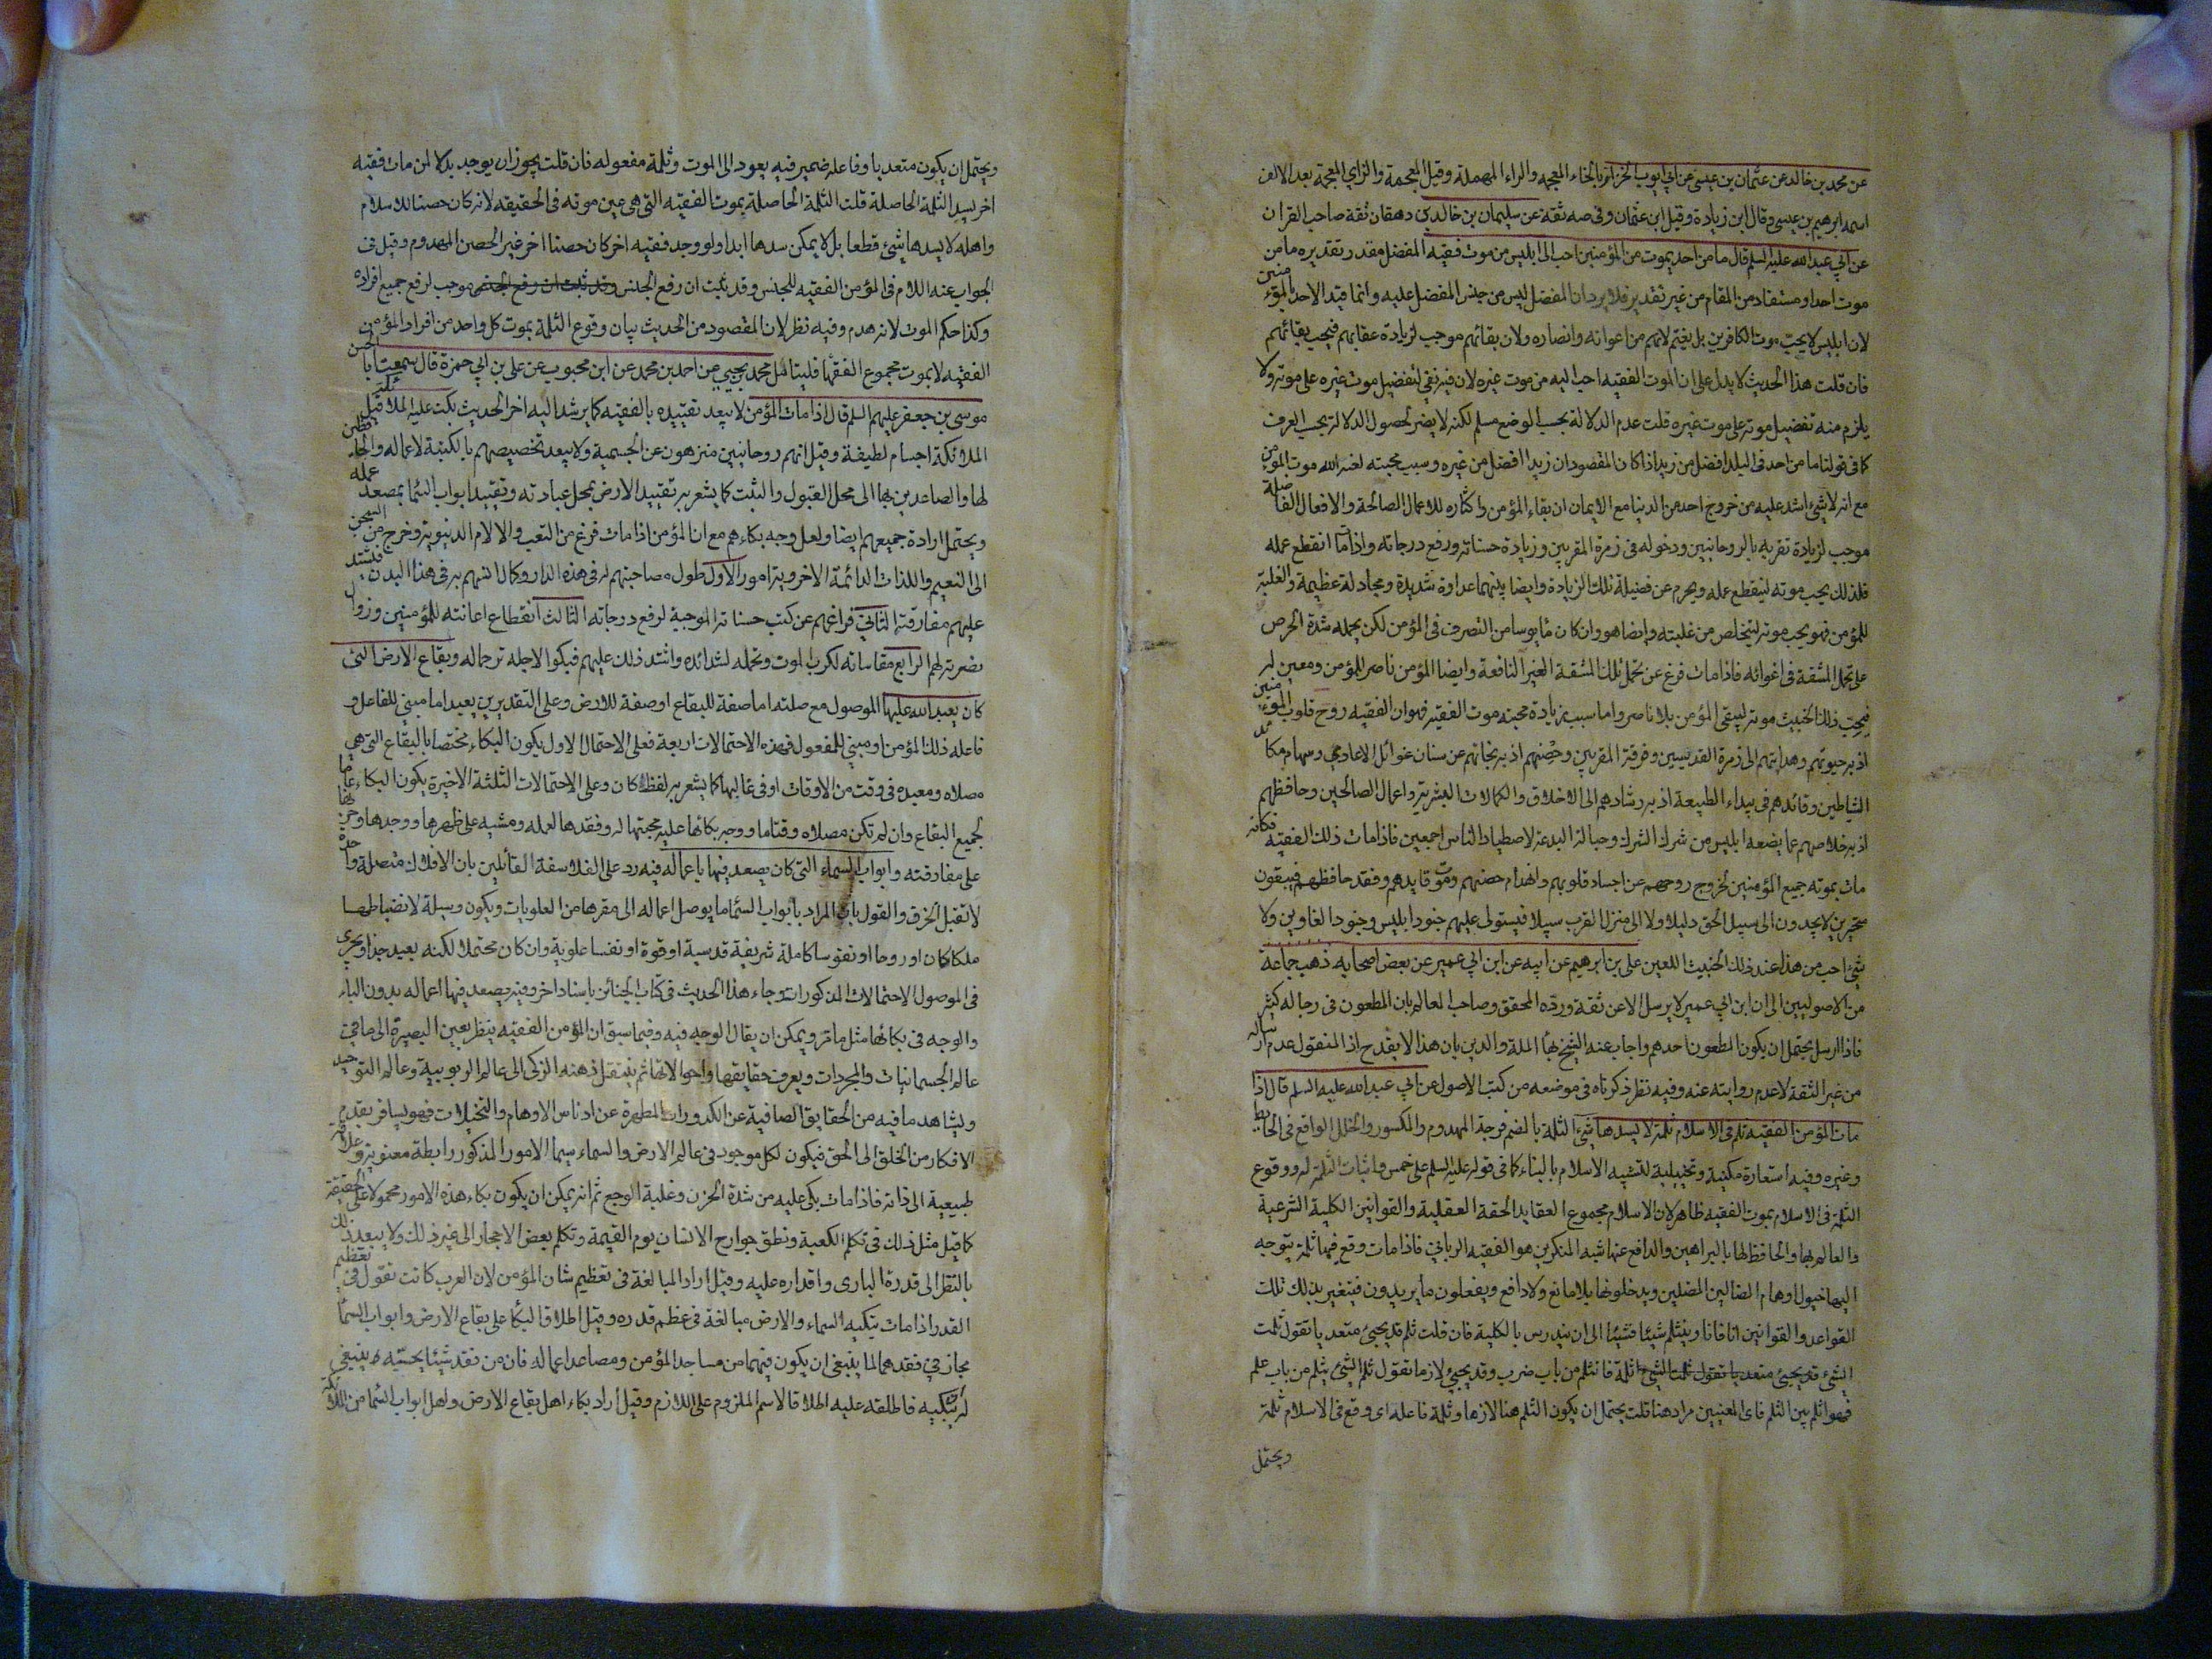 عن محمد بن خالد عن عثمان بن عيسى عن ابي ايوب الخزاز بالخاء المعجمه والراء المهملة وقيل المعجمة والزاي المعجمة بعد الالف
اسمه ابرهيم بن عيسى وقال ابن زيادة وقيل ابن عثمان وفي صه ثقة عن سليمان بن خالد بن دهقان ثقة صاحب القران
عن ابي عبد الله عليه السلم قال ما من احد يموت من المؤمنين احب الى ابليس من موت فقيه المفضل مقدر تقديره ما من
موت احد او مستفاد من المقام من غير تقدير فلا يرد ان المفضل ليس من جنس المفضل عليه وانما قيد الاحد بالمؤمنين
لان ابليس لا يحب موت الكافرين بل يغتم لانهم من اعوانه وانصاره ولان بقائهم موجب لزيادة عقابهم فيحب بقائهم
فان قلت هذا الحديث لا يدل على ان الموت الفقيه احب اليه من موت غيره لان فيه نفي لتفضيل موت غيره على موته ولا
يلزم منه تفضيل موته على موت غيره قلت عدم الدلالة بحسب الوضع مسلم لكنه لا يضر لحصول الدلالة بحسب العرف
كما في قولنا ما من احد في البلد افضل من زيد اذا كان المقصود ان زيدا افضل من غيره وسبب محبته لعنه الله موت المؤمن
مع انه لا شيء اشد عليه من خروج احد من الدنيا مع الايمان ان بقاء المؤمن واكثاره للاعمال الصالحة والافعال الفاضلة
موجب لزيادة تقربه بالروحانيين ودخوله في زمرة المقربين وزيادة حسناته ورفع درجاته واذا مات انقطع عمله
فلذلك يحب موته لينقطع عمله ويحرم عن فضيلة تلك الزيادة وايضا بينهما عداوة شديدة ومجادلة عظيمة والغلبة
للمؤمن فهو يحب موته ليتخلص من غلبته وايضا هو وان كان مأيوسا من التصرف في المؤمن لكن يحمله شدة الحرص
على تحمل المشقة في اغوائه فاذا مات فرغ عن تحمل تلك المشقة الغير النافعة وايضا المؤمن ناصر للمؤمن ومعين له
فيحب ذلك الخبيث موته ليبقى المؤمن بلا ناصر واما سبب زيادة محبته موت الفقيه فهو ان الفقيه روح قلوب المؤمنين
اذ به حيوتهم وهدايتهم الى زمرة القديسين وفرقة المقربين وحصنهم اذ به نجاتهم عن سنان غوائل الاعادي وسهام مكائد
الشياطين وقائدهم في بيداء الطبيعة اذ به رشادهم الى الاخلاق والكمالات البشرية واعمال الصالحين وحافظهم
اذ به خلاصهم عما يضعه ابليس من شرك الشرك وحبالة البدعة لاصطياد الناس اجمعين فاذا مات ذلك الفقيه فكانه
مات بموته جميع المؤمنين لخروج روحهم عن اجساد قلوبهم وانهدام حصنهم وموت قايدهم وفقد حافظهم فيبقون
متحيرين لا يجدون الى سبيل الحق دليلا ولا الى منزل القرب سبيلا فيستولى عليهم جنود ابليس وجنود الغاوين ولا
شيء احب من هذا عند ذلك الخبيث اللعين على بن ابرهيم عن ابيه عن ابن ابي عمير عن بعض اصحابه ذهب جماعة
من الاصوليين الى ان ابن ابي عمير لا يرسل الا عن ثقة ورده المحقق وصاحب المعالم بان المطعون في رجاله كثير
فاذا ارسل يحتمل ان يكون المطعون احدهم واجاب عنه الشيخ بهاء الملة والدين بان هذا لا يقدح اذ المنقول عدم ارساله
من غير الثقة لا عدم روايته عنه وفيه نظر ذكرناه في موضعه من كتب الاصول عن ابي عبد الله عليه السلم قال اذا
مات المؤمن الفقيه ثلم في الاسلام ثلمة لا يسدها شيء الثلمة بالضم فرجة المهدوم والمكسور والخلل الواقع في الحايط
وغيره وفيه استعارة مكنية وتخييلية لتشبيه الاسلام بالبناء كما في قوله عليه السلم على خمس واثبات الثلمة له ووقوع
الثلمة في الاسلام بموت الفقيه ظاهر لان الاسلام مجموع العقايد الحقة العقلية والقوانين الكلية الشرعية
والعالم بها والحافظ لها بالبراهين والدافع عنها شبه المنكرين هو الفقيه الرباني فاذا مات وقع فيها ثلمة يتوجه
اليها خيول اوهام الضالين المضلين ويدخلونها بلا مانع ولا دافع ويفعلون ما يريدون فيتغير بذلك تلك
القواعد والقوانين انا فانا وينثلم شيئا فشيئا الى ان يندرس بالكلية فان قلت ثلم قد يجيئ متعديا تقول ثلمت
الشيء قد يجيئ متعديا تقول ثلمت الشيء اثلمة فانثلم من باب ضرب وقد يجيئ لازما تقول ثلم الشيء يثلم من باب علم
فهو اثلم بين الثلم فاي المعنيين مراد هنا قلت يحتمل ان يكون الثلم هنا لازما وثلمة فاعله اى وقع في الاسلام ثلمة
ويحتمل
ويحتمل ان يكون متعديا وفاعله ضمير فيه يعود الى الموت وثلمة مفعوله فان قلت يجوز ان يوجد بدلا لمن مات فقيه
اخر يسد الثلمة الحاصلة قلت الثلمة الحاصلة بموت الفقيه التي هي عين موته في الحقيقه لانه كان حصنا للاسلام
واهله لا يسدها شيئ قطعا بل لا يمكن سدها ابدا ولو وجد فقيه اخر كان حصنا اخر غير الحصن المهدوم وقيل في
الجواب عنه اللام في المؤمن الفقيه للجنس وقد ثبت ان رفع الجنس وقد ثبت ان رفع الجنس موجب لرفع جميع افراده
وكذا حكم الموت لانه هدم وفيه نظر لان المقصود من الحديث بيان وقوع الثلمة بموت كل واحد من افراد المؤمن
الفقيه لا بموت مجموع الفقها فليتامل محمد بن يحيى عن احمد بن محمد عن ابن محبوب عن على بن ابي حمزة قال سمعت ابا الحسن
موسى بن جعفر عليهم السلم قال اذا مات المؤمن لا يبعد تقييده بالفقيه كما يرشد اليه اخر الحديث بكت عليه الملائكة قيل
الملائكة اجسام لطيفة وقيل انهم روحانيين منزهون عن الجسمية ولا يبعد تخصيصهم بالكتبة لاعماله والحافظين
لها والصاعدين بها الى محل القبول والثبت كما يشعر به تقييد الارض بمحل عبادته وتقييد ابواب السما بمصعد عمله
ويحتمل ارادة جميعهم ايضا ولعل وجه بكاءهم مع ان المؤمن اذا مات فرغ من التعب والالام الدنيوية وخرج من السجن
الى النعيم واللذات الدائمة الاخروية امور الاول طول مصاحبتهم له في هذه الدار وكمال انسهم به في هذا البدن فتشتد
عليهم مفارقته الثاني فراغهم عن كتب حسناته الموجبة لرفع درجاته الثالث انقطاع اعانته للمؤمنين وزوال
نصرته لهم الرابع مقاساته لكرب الموت وتحمله لشدائده واشتد ذلك عليهم فبكوا لاجله ترحماله وبقاع الارض التي
كان يعبد الله عليها الموصول مع صلته اما صفة للبقاع او صفة للارض وعلى التقديرين يعبد اما مبني للفاعل و
فاعله ذلك المؤمن او مبني للمفعول فهذه الاحتمالات اربعة فعلى الاحتمال الاول يكون البكاء مختصا بالبقاع التي هي
مصلاه ومعبده في وقت من الاوقات او في غالبها كما يشعر به لفظ كان وعلى الاحتمالات الثلثة الاخيرة يكون البكاء عاما
لجميع البقاع وان لم تكن مصلاه وقتاما ووجه بكائها عليه محبتها له وفقدها لعمله ومشيه على ظهرها ووجدها وحزنها
على مفارقته وابواب السماء التي كان يصعد فيها باعماله فيه رد على الفلاسفة القائلين بان الافلاك متصلة واحدة
لا تقبل الخرق والقول بان المراد بأبواب السما ما يوصل اعماله الى مقرها من العلويات ويكون وسيلة لانضباطها
ملكا كان او روحا او نفوسا كاملة شريفة قدسية او قوة او نفسا علوية وان كان محتملا لكنه بعيد جدا ويجرى
في الموصول الاحتمالات المذكورات وجاء هذا الحديث في كتاب الجنائز باسناد اخر وفيه يصعد فيها اعماله بدون الباء
والوجه في بكائها مثل ما مر ويمكن ان يقال الوجه فيه وفيما سبق ان المؤمن الفقيه ينظر بعين البصيرة الى ما في
عالم الجسمانيات والمجردات ويعرف حقايقها واحوالاتها ثم ينتقل ذهنه الزكى الى عالم الربوبية وعالم التوحيد
ويشاهد ما فيه من الحقايق الصافية عن الكدورات المطهرة عن ادناس الاوهام والتخيلات فهو يسافر بقدم
الافكار من الخلق الى الحق فيكون لكل موجود في عالم الارض والسماء سيما الامور المذكور رابطة معنوية وعلاقة
طبيعية الى ذاته فاذا مات بكى عليه من شدة الحزن وغلبة الوجع ثم انه يمكن ان يكون بكاء هذه الامور محمولا على الحقيقة
كما قيل مثل ذلك في تكلم الكعبة ونطق جوارح الانسان يوم القيمة وتكلم بعض الاحجار الى غير ذلك ولا يبعد ذلك
بالنظر الى قدرة البارى واقداره عليه وقيل اراد المبالغة في تعظيم شان المؤمن لان العرب كانت تقول في تعظيم
القدر اذا مات تبكيه السماء والارض مبالغة في عظم قدره وقيل اطلاق البكا على بقاع الارض وابواب السما
مجاز في فقدهما لما ينبغي ان يكون فيهما من مساجد المؤمن ومصاعد اعماله فان من فقد شيئا يحبه ينبغي
له تبكيه فاطلقه عليه اطلاقا لاسم الملزوم على اللازم وقيل اراد بكاء اهل بقاع الارض واهل ابواب السما من الملائكة